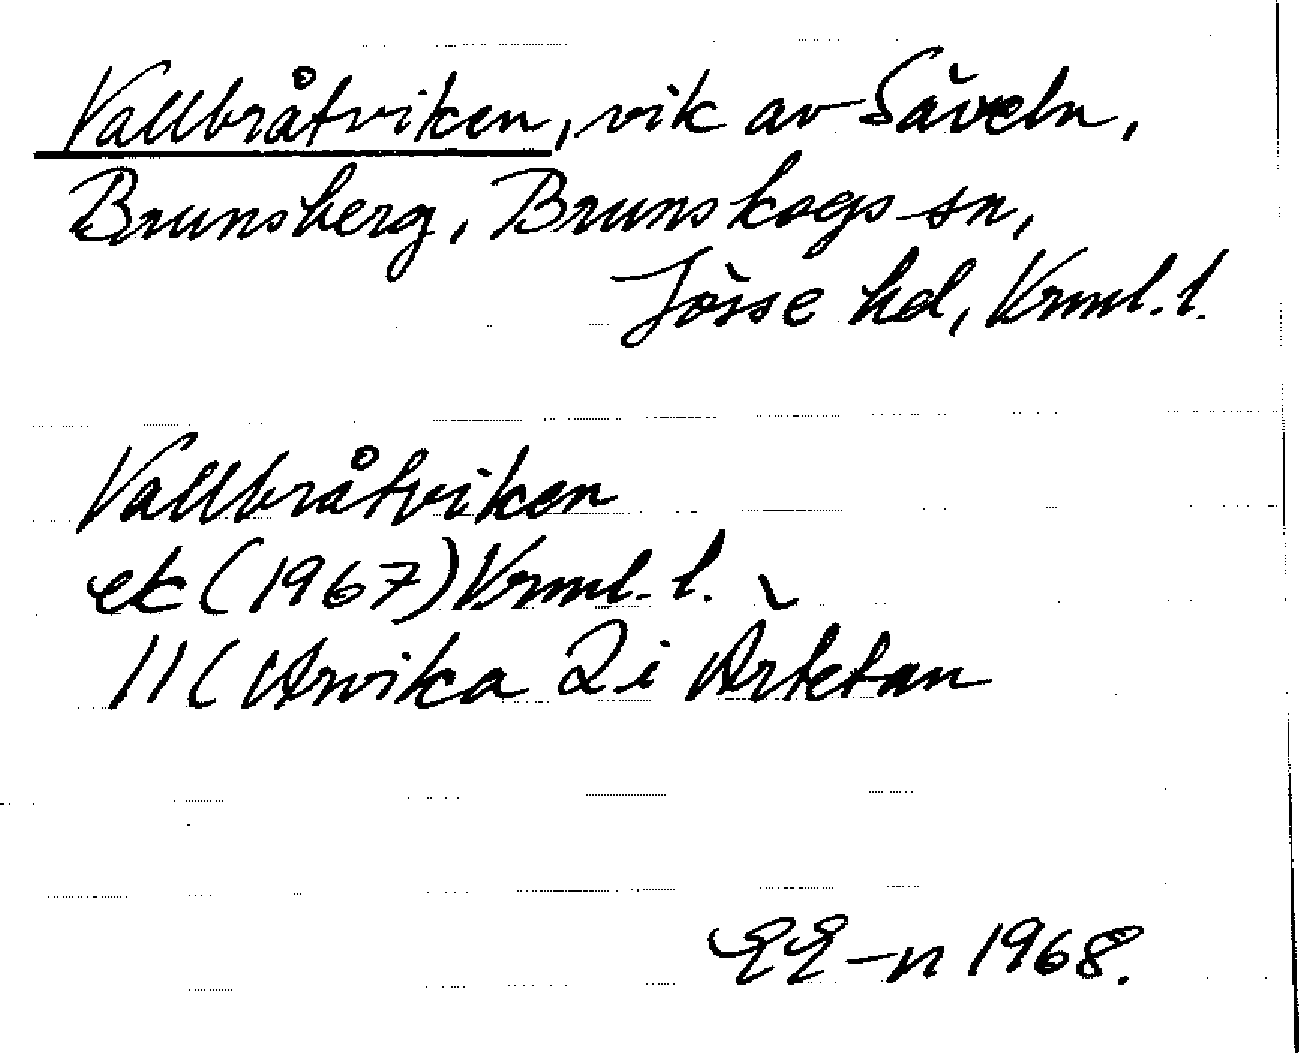 Vallbråtviken, vik av Säveln,
Brunsberg, Brunskogs sn,
Jösse hd, Vrml. l.
Vallbråtviken
ek (1967) Vrml. l.
11C Arvika 2i Ärtetan
EE-n 1968.